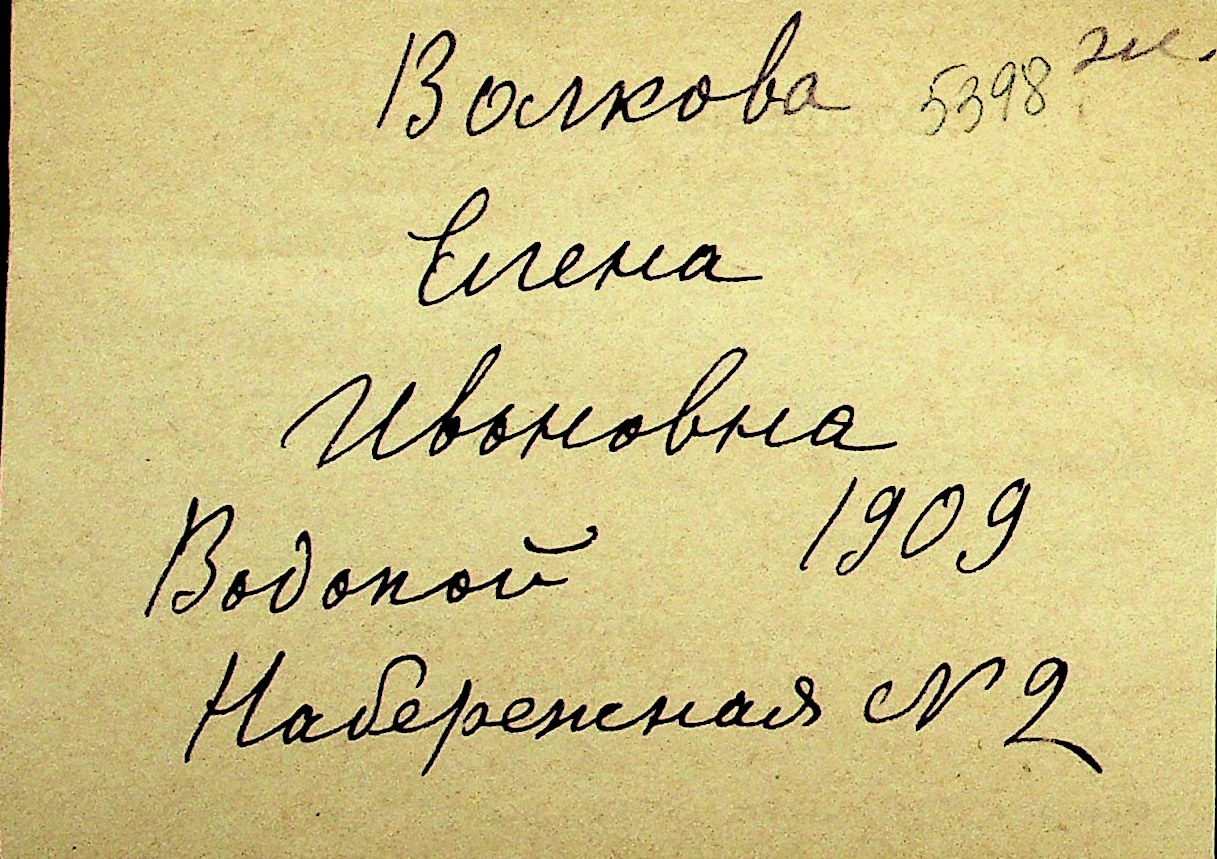 Волкова 5398 ж.
Елена
Ивановна
1909
Водопой
Набережная № 2